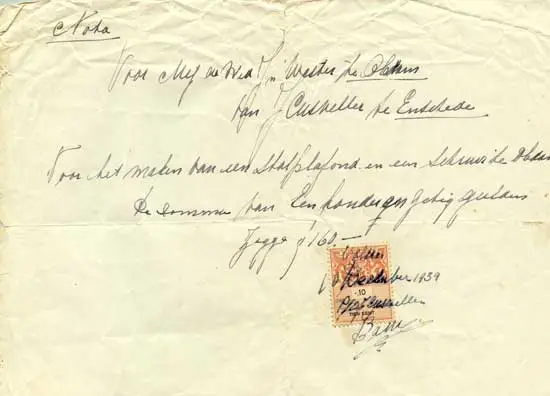 Nota
Voor Mej de Wed J n Wester te Olde
van J Cusveller te Enschede
Voor het maken van een Stalplafond en een Schuur te
De somma van Een honderd en getig gulden
Zegge f 160.—
December 1939
.10
TIEN CENT
Cusveller